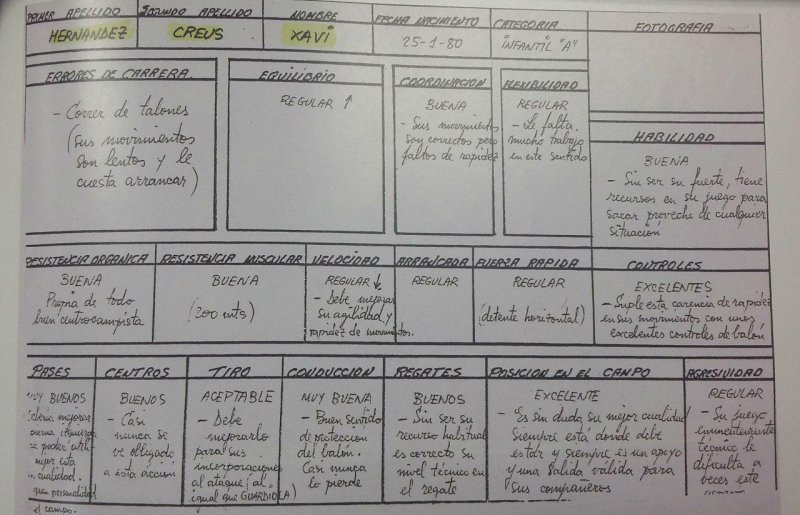 PRIMER APELLIDO
HERNANDEZ
SEGUNDO APELLIDO
CREUS
NOMBRE
XAVI
FECHA NACIMIENTO
25-1-80
CATEGORIA
INFANTIL "A"
FOTOGRAFIA
ERRORES DE CARRERA
- Correr de talones
(sus movimientos
son lentos y le
cuesta arrancar)
EQUILIBRIO
REGULAR ↑
COORDINACION
BUENA
- Sus movimientos
son correctos pero
faltos de rapidez
FLEXIBILIDAD
REGULAR
- Le falta
mucho trabajo
en este sentido
HABILIDAD
BUENA
- Sin ser su fuerte, tiene
recursos en su juego para
sacar provecho de cualquier
situación
RESISTENCIA ORGANICA
BUENA
Propia de todo
buen centrocampista
RESISTENCIA MUSCULAR
BUENA
(200 mts)
VELOCIDAD
REGULAR ↓
- Debe mejorar
su agilidad y
rapidez de movimientos.
ARRANCADA
REGULAR
FUERZA RAPIDA
REGULAR
(detente horizontal)
CONTROLES
EXCELENTES
- Suple esta carencia de rapidez
en sus movimientos con unos
excelentes controles de balón
PASES
MUY BUENOS
mejorar
poder
mejor esta
cualidad.
personalidad
el campo.
CENTROS
BUENOS
- Casi
nunca se
ve obligado
a esta acción
TIRO
ACEPTABLE
- Debe
mejorarlo
para sus
incorporaciones
al ataque (al
igual que GUARDIOLA)
CONDUCCION
MUY BUENA
- Buen sentido
de protección
del balón.
Casi nunca
lo pierde
REGATES
BUENOS
- Sin ser su
recurso habitual
es correcto su
nivel técnico en
el regate
POSICION EN EL CAMPO
EXCELENTE
- Es sin duda su mejor cualidad
Siempre está donde debe
estar y siempre es un apoyo
y una salida válida para
sus compañeros
AGRESIVIDAD
REGULAR
- Su juego
eminentemente
técnico le
dificulta a
veces este